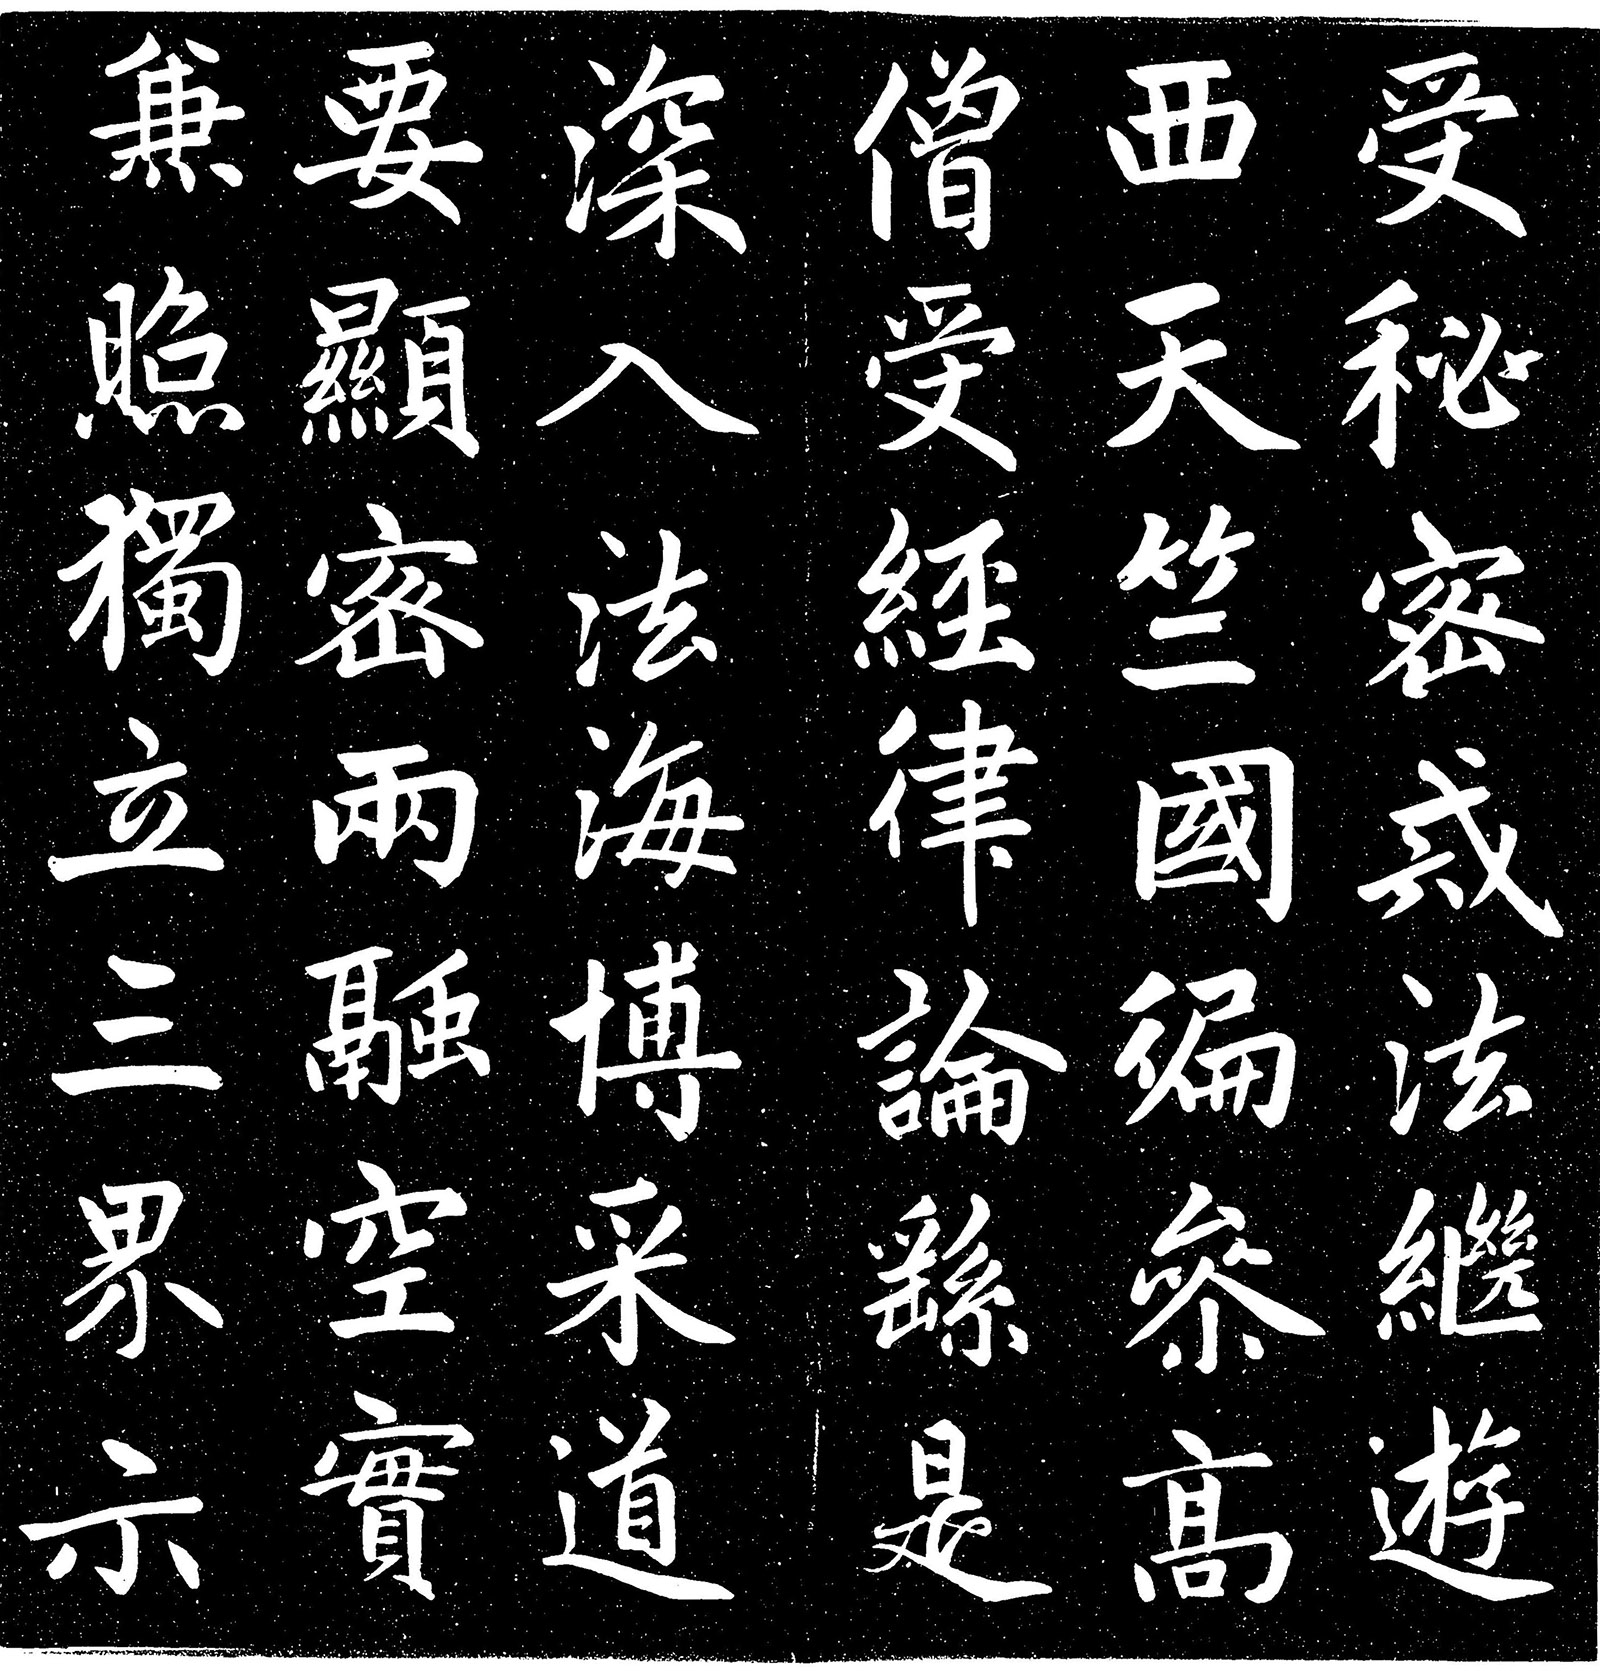 受秘密戒法繼遊
西天竺國徧參髙
僧受經律論繇是
深入法海博采道
要顯密兩融空實
兼照獨立三界示